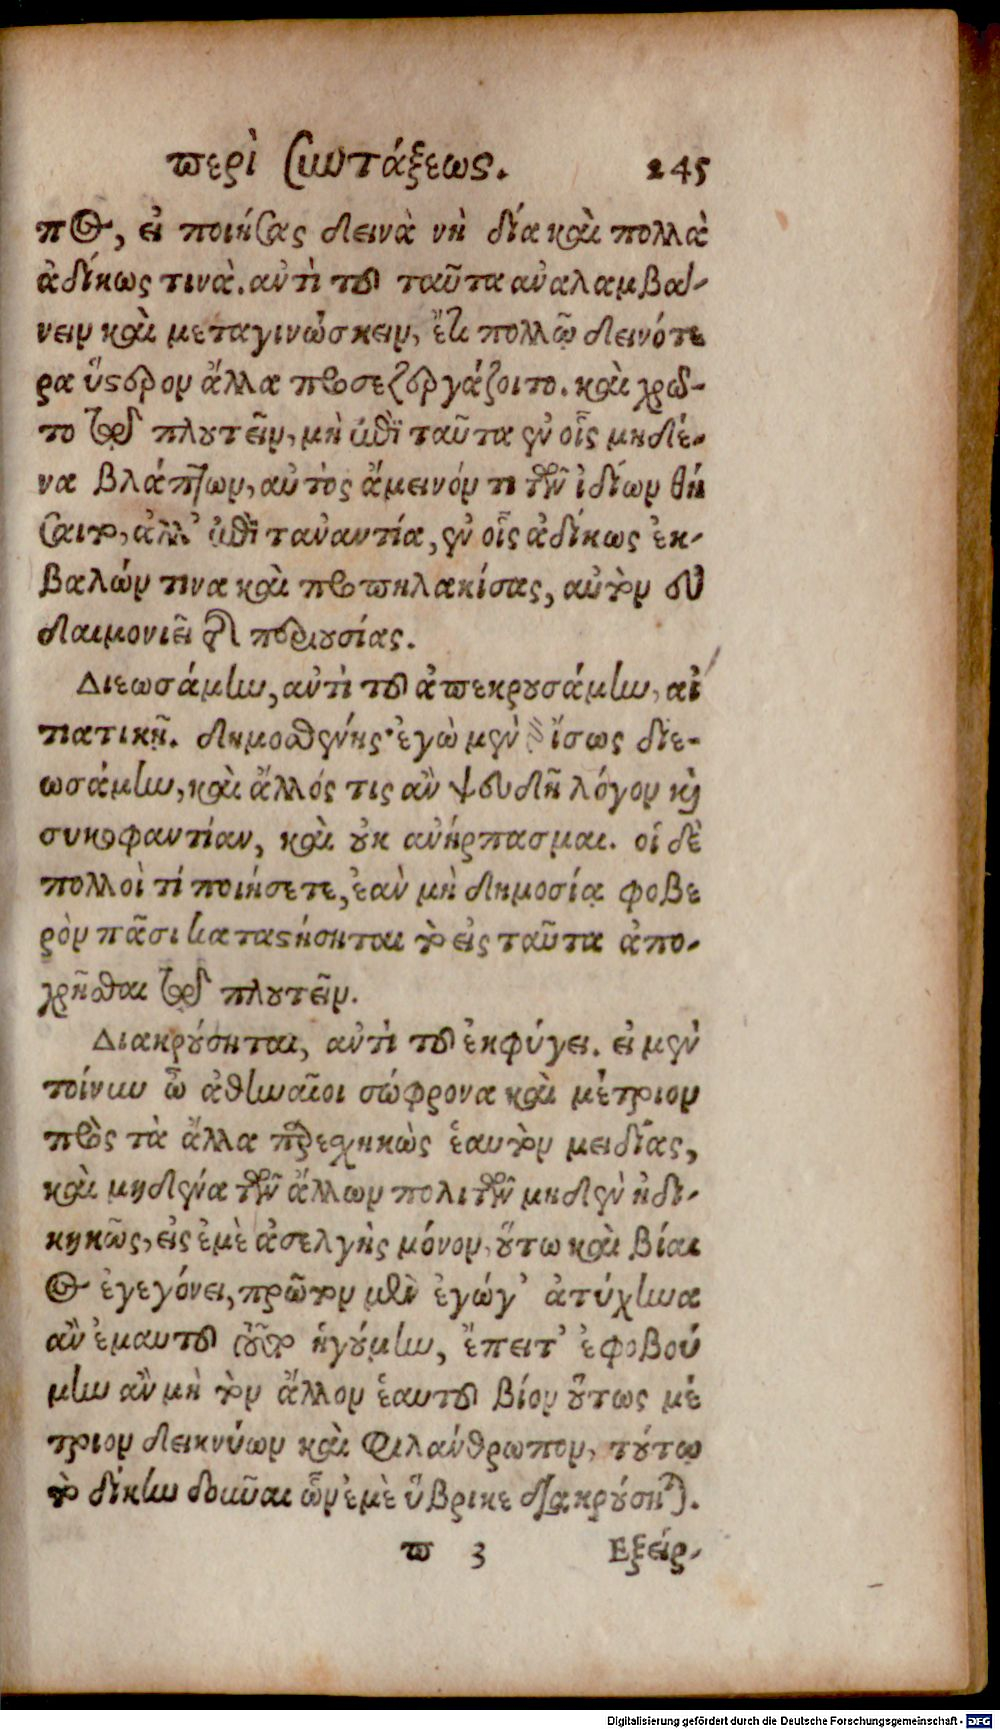 περὶ συντάξεως. 245
πος, εἰ ποιήσας δεινὰ νὴ δία καὶ πολλὰ
ἀδίκως τινὰ. ἀντὶ τοῦ ταῦτα ἀναλαμβά-
νειν καὶ μεταγινώσκειν, ἔτι πολλῷ δεινότε
ρα ὕστερον ἄλλα προσεξεργάζοιτο. καὶ χρῷ-
το τῷ πλουτεῖν, μὴ ἐπὶ ταῦτα ἐν οἷς μηδέ-
να βλάπτων, αὐτὸς ἄμεινόν τι τῶν ἰδίων θή
σαιτο, ἀλλ' ἐπὶ τἀναντία, ἐν οἷς ἀδίκως ἐκ-
βαλών τινα καὶ προπηλακίσας, αὑτὸν εὐ
δαιμονιεῖ τῆς περιουσίας.
Διεωσάμην, ἀντὶ τοῦ ἀπεκρουσάμην, αἰ
τιατικῇ. δημοσθένης· ἐγὼ μὲν ἴσως διε-
ωσάμην, καὶ ἄλλός τις ἂν ψευδῆ λόγον καὶ
συκοφαντίαν, καὶ οὐκ ἀνήρπασμαι. οἱ δὲ
πολλοὶ τί ποιήσετε, ἐὰν μὴ δημοσίᾳ φοβε
ρὸν πᾶσι καταστήσηται τὸ εἰς ταῦτα ἀπο-
χρῆσθαι τῷ πλουτεῖν.
Διακρούσηται, ἀντὶ τοῦ ἐκφύγει. εἰ μὲν
τοίνυν ὦ ἀθηναῖοι σώφρονα καὶ μέτριον
πρὸς τὰ ἄλλα παρεχηκὼς ἑαυτὸν μειδίας,
καὶ μηδένα τῶν ἄλλων πολιτῶν μηδὲν ἠδι-
κηκῶς, εἰς ἐμὲ ἀσελγὴς μόνον, οὕτω καὶ βίαι
ος ἐγεγόνει, πρῶτον μὲν ἐγώγ' ἀτύχημα
ἂν ἐμαυτοῦ τοῦτο ἡγούμην, ἔπειτ' ἐφοβού
μην ἂν μὴ τὸν ἄλλον ἑαυτοῦ βίον οὕτως μέ
τριον δεικνύων καὶ φιλάνθρωπον, τούτῳ
τὸ δίκην δοῦναι ὧν ἐμὲ ὕβρικε διακρούσηται.
ϖ 3 Εξείρ-